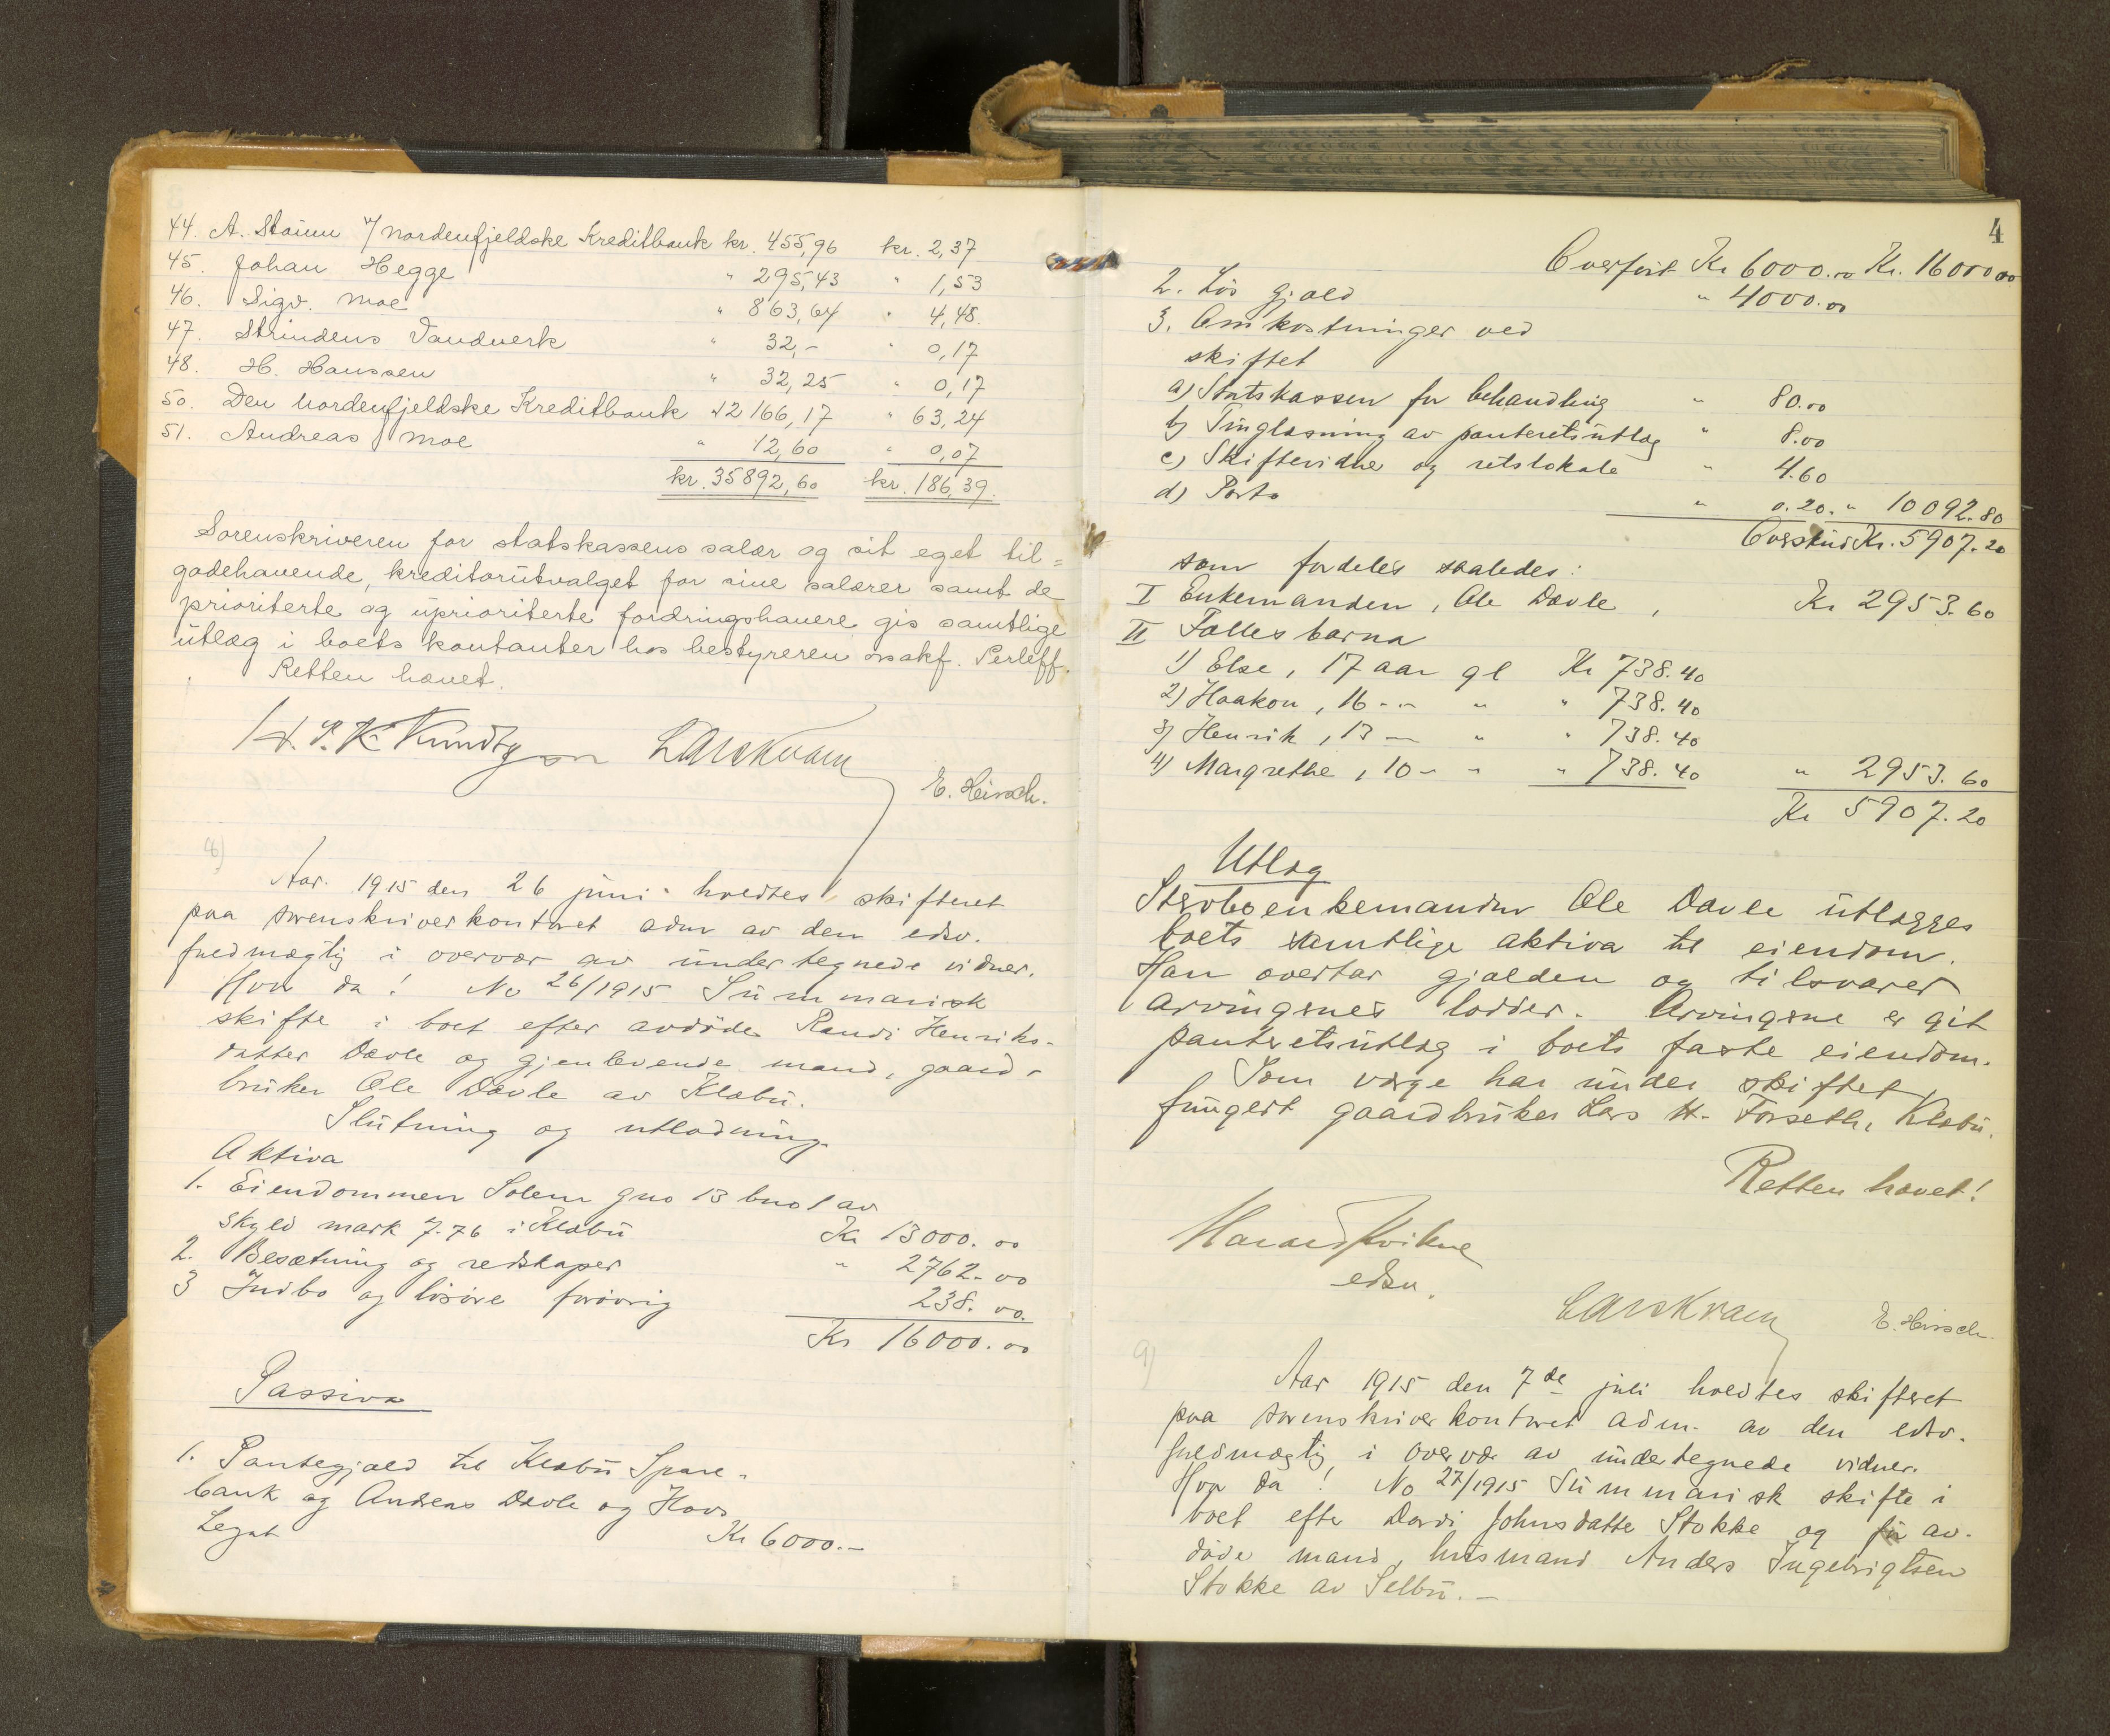 44. A. Stöinn v/ Nordenfjeldske Kreditbank kr. 455,96 kr. 2,37
45. Johan Hegge " 295,43 " 1,53
46. Sigv. Moe " 863,64 " 4,48
47. Strindens Vandverk " 32,- " 0,17
48. H. Hanssen " 32,25 " 0,17
50. Den nordenfjeldske Kreditbank " 12166,17 " 63,24
51. Andreas Moe " 12,60 " 0,07
kr. 35892,60 kr. 186,39.
Sorenskriveren for statskassens salær og sit eget til=
godehavende, kreditorutvalget for sine salærer samt de
prioriterte og uprioriterte fordringshavere gis samtlige
utlæg i boets kontanter hos bestyreren o.r.sakf. Perleff.
Retten hævet.
Lars Kvam
E. Hirsch.
8)
Aar 1915 den 26 juni holdtes skifteret
paa sorenskriverkontoret adm av den edsv.
fuldmægtig i overvær av undertegnede vidner.
Hvor da! No 26/1915 Summarisk
skifte i boet efter avdøde Randi Henriks-
datter Dævle og gjenlevende mand, gaard-
bruker Ole Dævle av Klæbu.
Slutning og utlodning.
Aktiva
1. Eiendommen Solem gno 13 bno 1 av
skyld mark 7.76 i Klæbu Kr 13000.00
2. Besætning og redskaper " 2762.00
3 Indbo og løsøre forøvrig 238.00.
Kr 16000.00
Passiva
1. Pantegjæld til Klæbu Spare-
bank og Andreas Dævle og Hovs
Legat Kr 6000.-
4
Overført Kr 6000.00 Kr. 16000.00
2. Løs gjæld " 4000.00
3. Omkostninger ved
skiftet
a) Statskassen for behandling " 80.00
b) Tinglæsning av panteretsutlæg " 8.00
c) Skiftevidner og retslokale " 4.60
d) Porto " 0.20. " 10092.80
Overskud Kr. 5907.20
som fordeles saaledes:
I Enkemanden, Ole Dævle, Kr 2953.60
II Fælles barna
1) Else, 17 aar gl Kr 738.40
2) Haakon, 16 - " " " 738.40
3) Henrik, 13 - " " 738.40
4) Margrethe, 10 - " " 738.40 " 2953.60
Kr 5907.20
Utlæg
Stervboenkemanden Ole Dævle utlægges
boets samtlige aktiva til eiendom.
Han overtar gjælden og tilsvarer
arvingenes lodder. Arvingene er git
panteretsutlæg i boets faste eiendom.
Som værge har under skiftet
fungert gaardbruker Lars H. Forseth, Klæbu.
Retten hævet!
Harald Kvikne
edsv.
Lars Kvam
E. Hirsch.
9)
Aar 1915 den 7de juli holdtes skifteret
paa sorenskriverkontoret adm. av den edsv.
fuldmægtig i overvær av undertegnede vidner.
Hvor da! No 27/1915 Summarisk skifte i
boet efter Dordi Johnsdatter Stokke og før av-
døde mand, husmand Anders Ingebrigtsen
Stokke av Selbu. -